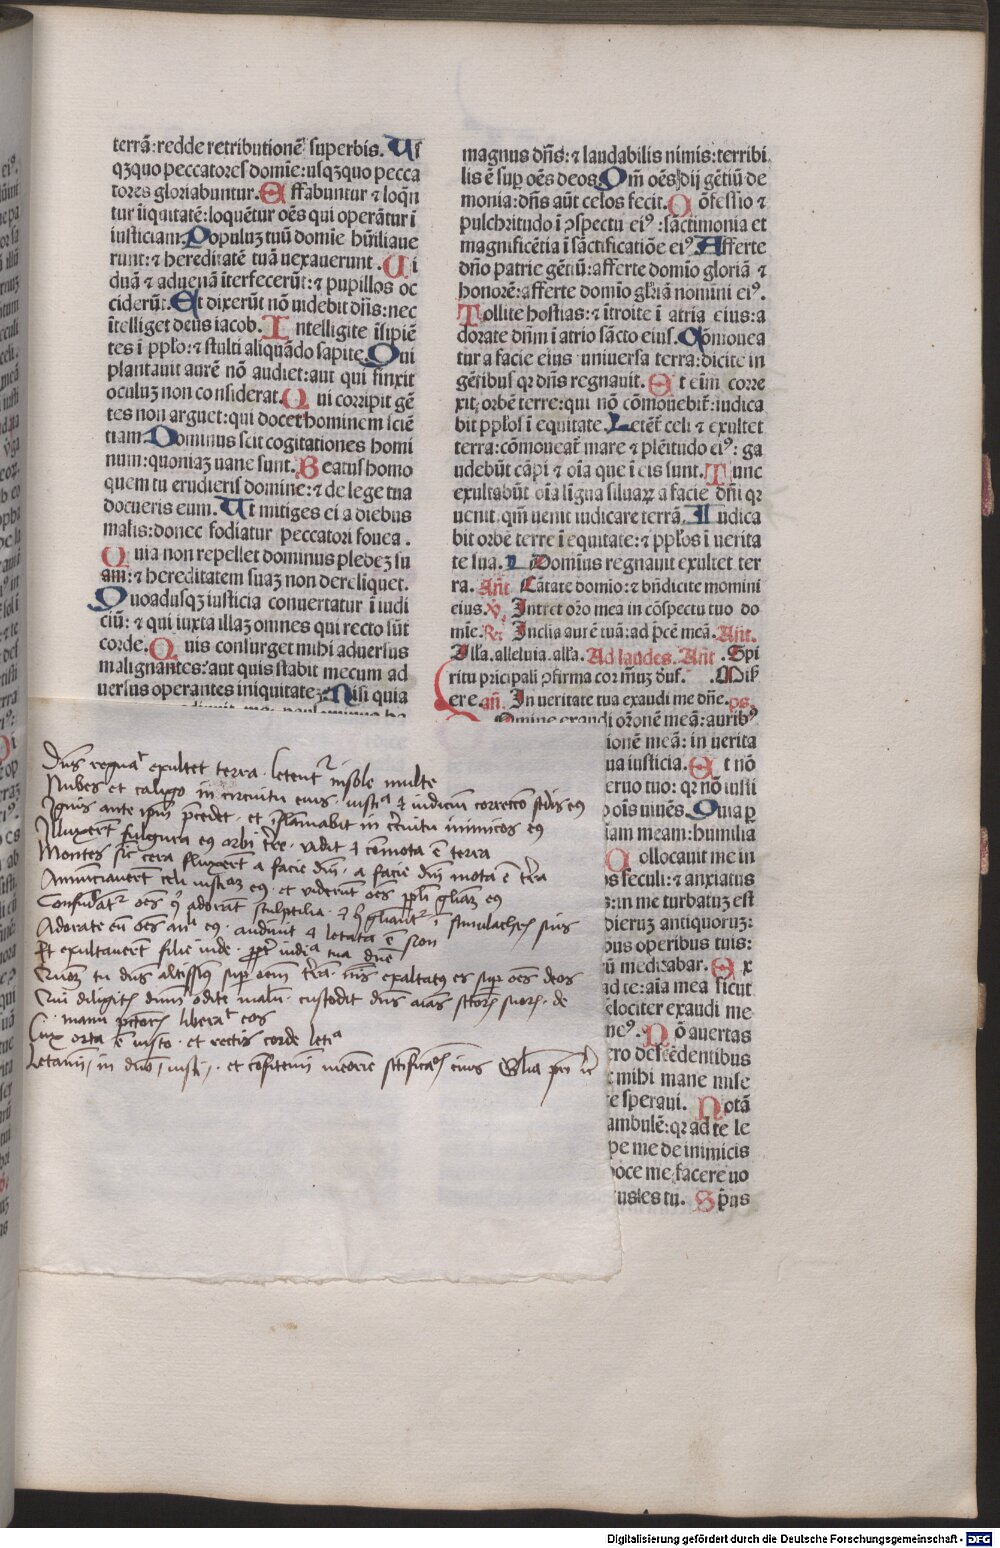 terrã:redde retributionẽ superbis. Us
qꝫquo peccatores domĩe:usqꝫquo pecca
tores gloriabuntur. Effabuntur ⁊ loqũ
tur ĩiquitatẽ:loquẽtur oẽs qui operãtur ĩ
iusticiam. Populuꝫ tuũ domĩe hũiliaue
runt:⁊ hereditatẽ tuã uexauerunt. Ui
duã ⁊ aduenã ĩterfecerũt:⁊ pupillos oc
ciderũt. Et dixerũt nõ uidebit dñs:nec
ĩtelliget deus iacob. Intelligite ĩsipiẽ
tes ĩ ppło:⁊ stulti aliquãdo sapite. Qui
plantauit aurẽ nõ audiet:aut qui finxit
oculuꝫ non considerat. Qui corripit gẽ
tes non arguet:qui docet hominem sciẽ
tiam. Dominus scit cogitationes homi
num:quoniaꝫ uane sunt. Beatus homo
quem tu erudieris domine:⁊ de lege tua
docueris eum. Ut mitiges ei a diebus
malis:donec fodiatur peccatori fouea.
Quia non repellet dominus plebeꝫ su
am:⁊ hereditatem suaꝫ non derelinquet.
Quoadusqꝫ iusticia conuertatur ĩ iudi
ciũ:⁊ qui iuxta illaꝫ omnes qui recto sũt
corde. Quis consurget mihi aduersus
malignantes:aut quis stabit mecum ad
uersus operantes iniquitateꝫ. Nisi quia
magnus dñs:⁊ laudabilis nimis:terribi
lis ẽ suꝑ oẽs deos. Qm̃ oẽs dij gẽtiũ de
monia:dñs aũt celos fecit. Cõfessio ⁊
pulchritudo ĩ ꝯspectu eiꝰ:sãctimonia et
magnificẽtia ĩ sãctificatiõe eiꝰ. Afferte
dño patrie gẽtiũ:afferte domĩo gloriã ⁊
honorẽ:afferte domĩo głriã nomini eiꝰ.
Tollite hostias:⁊ ĩtroite ĩ atria eius:a
dorate dñm ĩ atrio sãcto eius. Cõmouea
tur a facie eius uniuersa terra:dicite in
gẽtibus qꝛ dñs regnauit. Et eĩm corre
xit orbẽ terre:qui nõ cõmouebit̃:iudica
bit ppłos ĩ equitate. Letẽt̃ celi ⁊ exultet
terra:cõmoueat̃ mare ⁊ plẽitudo eiꝰ:ga
udebũt cãpi ⁊ oĩa que ĩ eis sunt. Tunc
exultabũt oĩa lĩgna siluaꝝ a facie dñi qꝛ
uenit.qm̃ uenit iudicare terrã. Iudica
bit orbẽ terre ĩ equitate:⁊ ppłos ĩ uerita
te sua. Domĩus regnauit exultet ter
ra. Añt Cãtate domĩo:⁊ bñdicite nomini
eius. ℣. Intret oro mea in cõspectu tuo do
mĩe. Re Inclia aurẽ tuã:ad p̃cẽ meã. Añt.
Alla.alleluia.alła. Ad laudes. Añt. Spi
ritu pricipali ꝯfirma cor m̃uꝫ dus. Mis
ere. añ. In ueritate tua exaudi me dñe. ps
Domine exaudi orõnẽ meã:auribꝰ
ionẽ meã: in uerita
ua iusticia. Et nõ
eruo tuo: qꝛ nõ iusti
oĩs uiuẽs. Quia ꝑ
iam meam:humilia
Collocauit me in
s seculi:⁊ anxiatus
:in me turbatuꝫ est
dieruꝫ antiquoruꝫ:
bus operibus tuis:
ũ meditabar. Ex
ad te:aĩa mea sicut
elociter exaudi me
meꝰ. Nõ auertas
ero descẽdentibus
c mihi mane mise
te speraui. Notã
ambulẽ:qꝛ ad te le
pe me de inimicis
doce me facere uo
us es tu. Spũs
Dñs regnaᵗ exultet terra . letentʳ insole multe
Nubes et caligo in circuitu eius . iustiᵃ et iudiciũ correctõ sedis eiꝰ
Ignis ante ip̃m p̃cedet . et ĩflam̃abit in c̃cuitu inimicos eiꝰ
Illuxerũt fulgura eiꝰ orbi t̃re . vidit et com̃ota ẽ terra
Montes sic cera fluxerũt a facie dñi . a facie dñi mota ẽ t̃ra
Annũciauerũt celi iustiᵃm eiꝰ . et viderũt oẽs ppli gl̃iam eiꝰ
Confũdãtʳ oẽs qi adorãt sculptilia . et qi gl̃iantʳ ĩ simulachris suis
Adorate eũ oẽs anᵍli eiꝰ . audiuit et letata ẽ sion
Et exultauerũt filie iude . ꝓpt̃ iudiᵃ tua dñe
Qm̃ tu dñs altissimꝰ super om̃em t̃rã . nĩs exaltatꝰ es super oẽs deos
Qui diligitis dñm odite malũ . custodit dñs aĩas sc̃torꝝ suorꝝ . de
manu pc̃toris liberaᵗ eos
Lux orta ẽ iusto . et rectis corde letiᵃ
Letamĩ iusti in dño . et confitemĩ memorie sc̃tificaᵒis eius Gl̃ia pr̃i
Digitalisierung gefördert durch die Deutsche Forschungsgemeinschaft - DFG